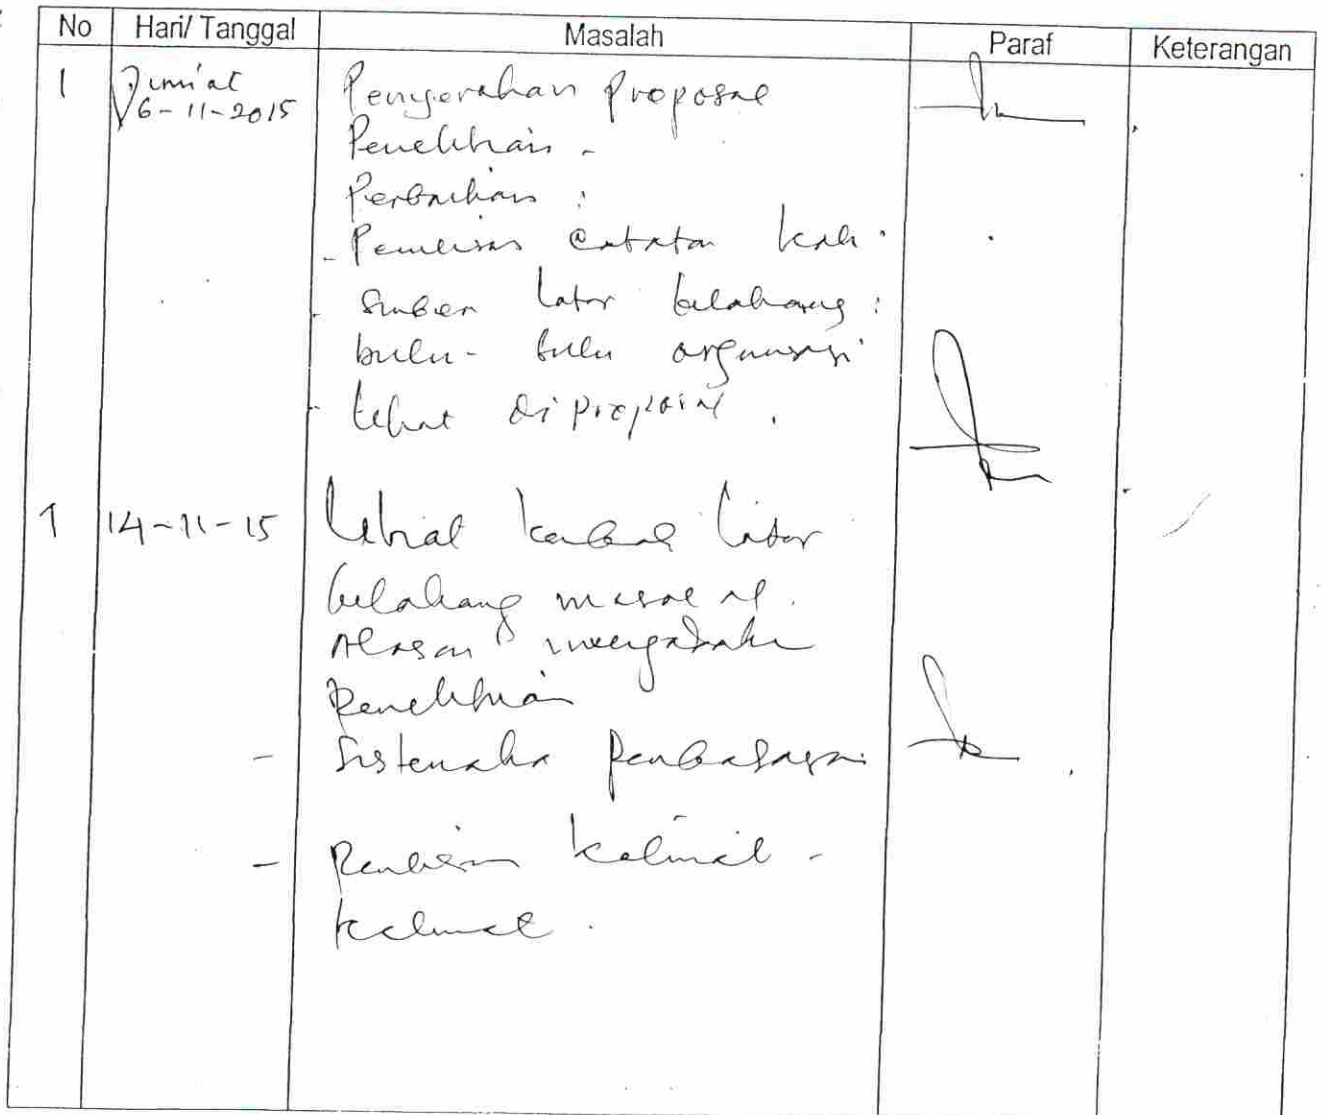 No Hari/ Tanggal Masalah Paraf Keterangan
1 Jum'at Penyerahan Proposal
6-11-2015
Penelitian -
Perbaikan :
- Penulisan Catatan kaki.
Sumber latar belakang :
buku - buku organisasi
lihat di proposal .
1 14-11-15 Lihat kembali latar
belakang
Alasan mengadakan
Penelitian
- Sistematika Pembahasan
- Penulisan kalimat -
kalimat .